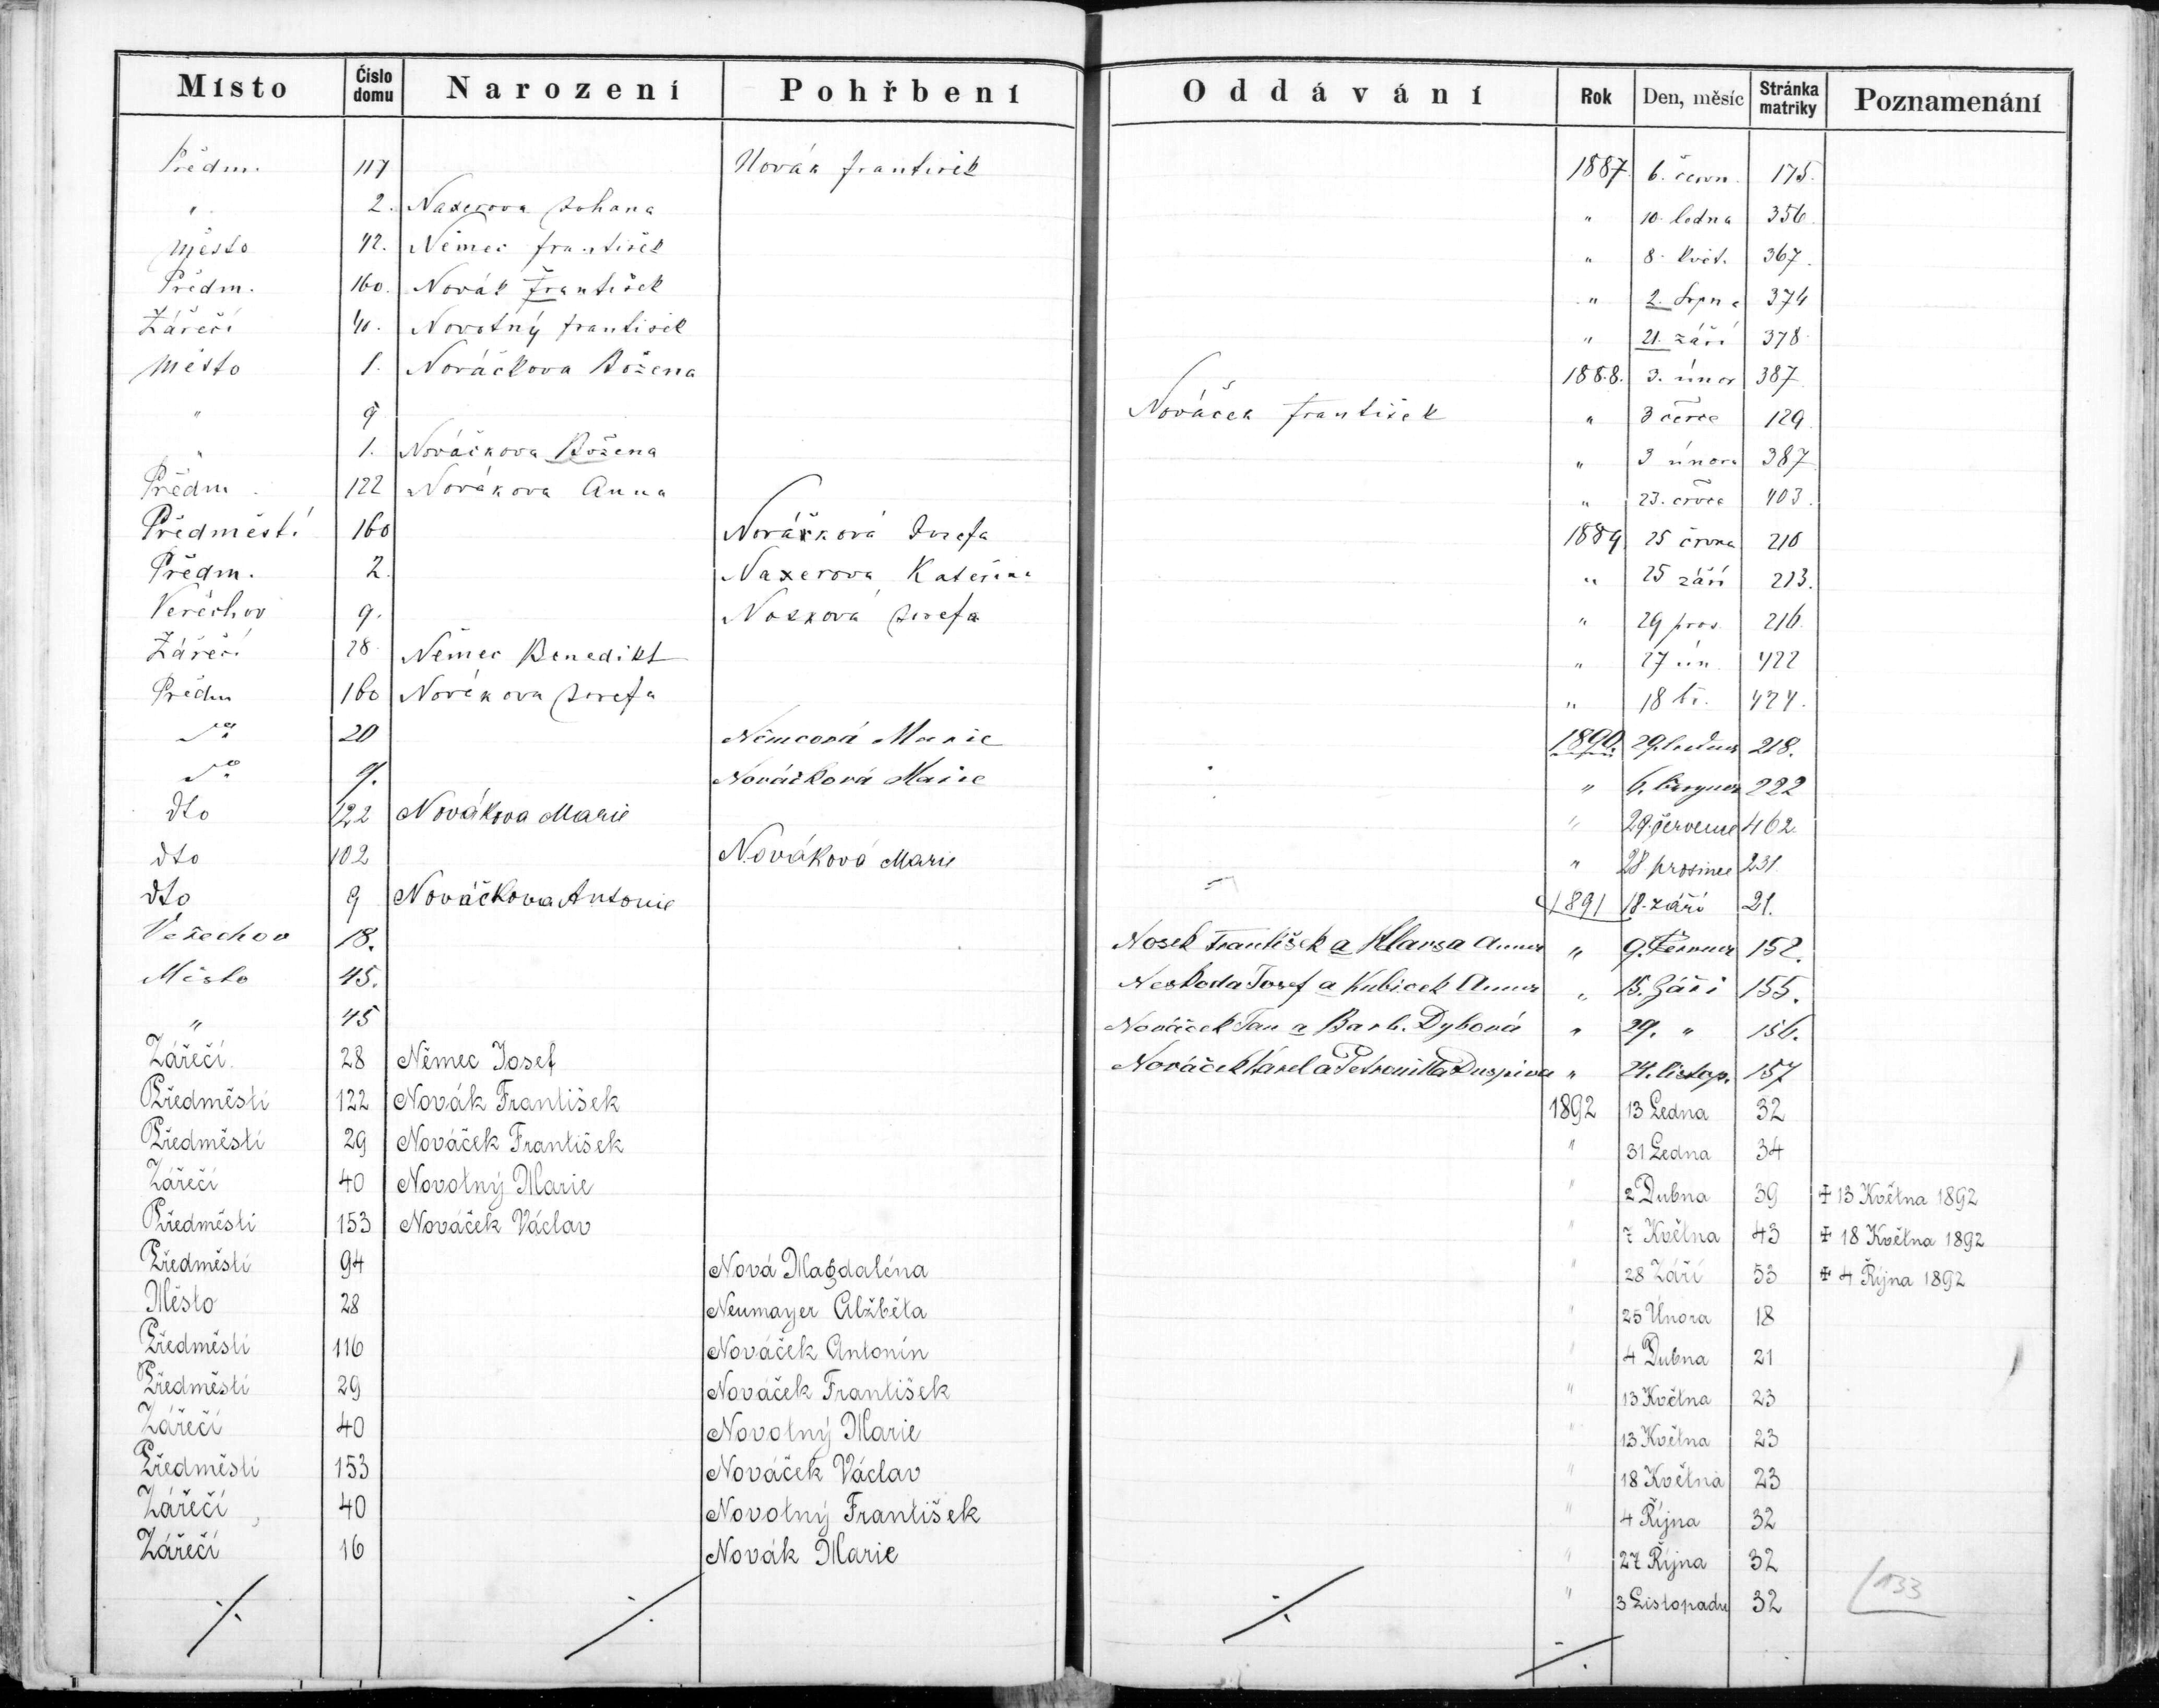 Místo Číslo domu Narození Pohřbení Oddávání Rok Den, měsíc Stránka matriky Poznamenání
Předm. 117 Novák František 1887 6. červn. 175.
" 2. Naxerova Johana " 10. ledna 356
město 42. Němec František " 8. Květ. 367.
Předm. 160. Novák František " 2. Srpna 374
Zářečí 40. Novotný František " 21. září 378
Město 1. Nováčkova Božena 1888. 3. únor 387
" 9 Nováček František " 3 červce 129
" 1. Nováčkova Božena " 3 února 387
Předm. 122 Novákova Anna " 23. črvce 403.
Předměstí 160 Nováčková Josefa 1889 25 črvna 210
Předm. 2. Naxerova Kateřina " 25 září 213.
Veřechov 9. Nosková Josefa " 29 pros. 216
Zářečí 28 Němec Benedikt " 27 ún. 422
Předm 160 Novákova Josefa " 18 bř. 424.
dto 20 Němcová Marie 1890. 29. ledna 218.
dto 9. Nováčková Marie " 6. března 222
dto 122 Novákova Marie " 29. července 462
dto 102 Nováková Marie " 28 prosince 231
dto 9 Nováčkova Antonie 1891 18. září 21.
Veřechov 18. Nosek František a Anna " 9. 152.
Město 45. Josef a Kubicek Anna " 15. Září 155.
" 45 Nováček Jan a Barb. Dybová " 29. " 156.
Zářečí 28 Němec Josef Nováček Karel a Petronilla Duspiva " 24. listop. 157
Předměstí 122 Novák František 1892 13 Ledna 32
Předměstí 29 Nováček František " 31 Ledna 34
Zářečí 40 Novotný Marie " 2 Dubna 39 ☩ 13 Května 1892
Předměstí 153 Nováček Václav " 7 Května 43 ☩ 18 Května 1892
Předměstí 94 Nová Magdaléna " 28 Září 53 ☩ 4 Října 1892
Město 28 Neumayer Alžběta " 25 Února 18
Předměstí 116 Nováček Antonín " 4 Dubna 21
Předměstí 29 Nováček František " 13 Května 23
Zářečí 40 Novotný Marie " 13 Května 23
Předměstí 153 Nováček Václav " 18 Května 23
Zářečí 40 Novotný František " 4 Října 32
Zářečí 16 Novák Marie " 27 Října 32
" 3 Listopadu 32
133